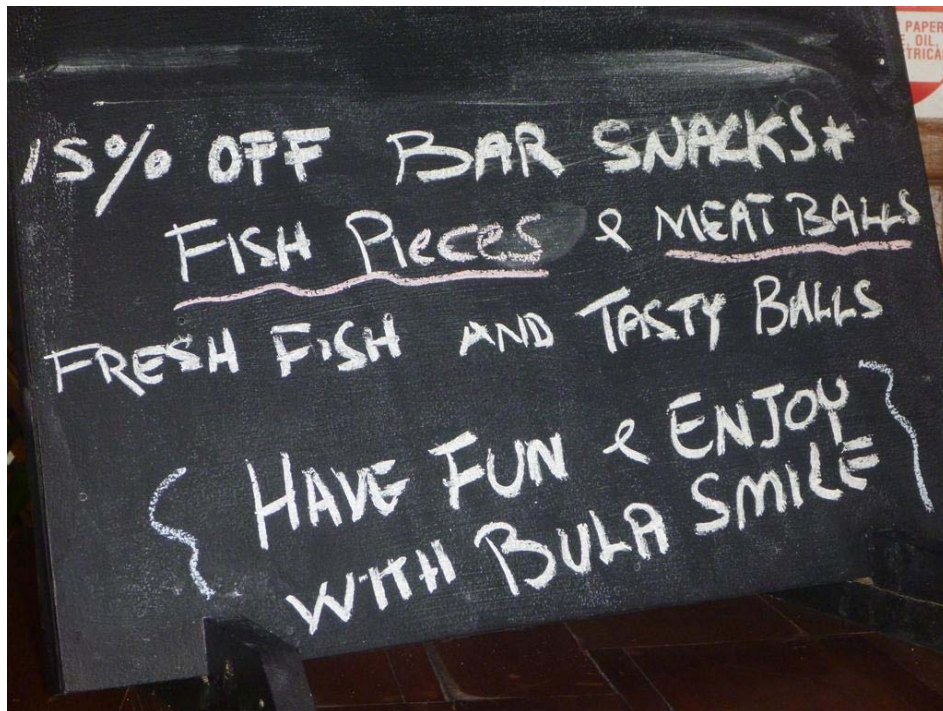 PAPER
, OIL,
TRICA
15% OFF BAR SNACKS*
FISH PIECES & MEAT BALLS
FRESH FISH AND TASTY BALLS
HAVE FUN & ENJOY
WITH BULA SMILE